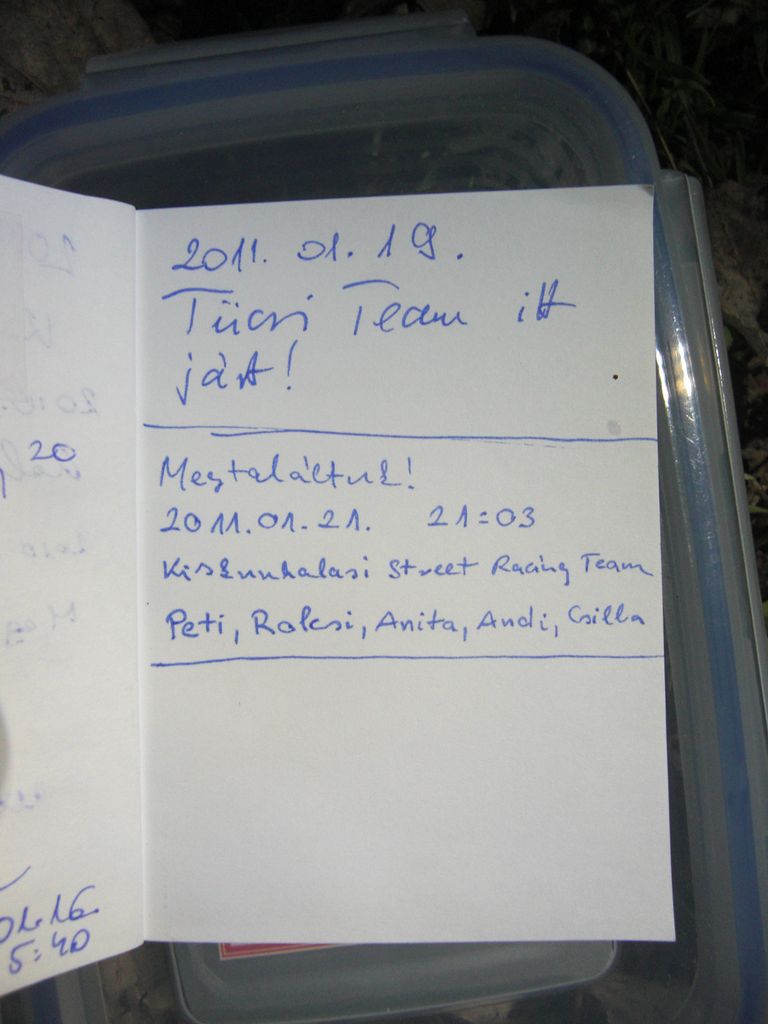 2011. 01. 19.
Tücsi Team itt
járt!
Megtaláltuk!
2011.01.21. 21:03
Kiskunhalasi Street Racing Team
Peti, Rolcsi, Anita, Andi, Csilla
20
01.16.
5:40